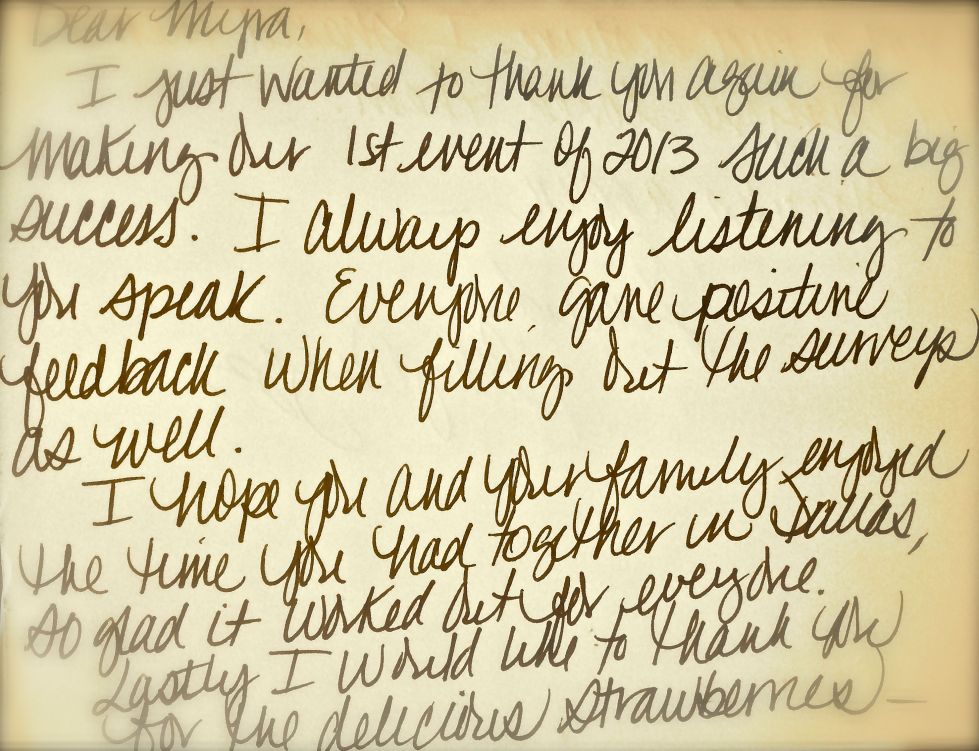 Dear Myra,
I just wanted to thank you again for
making our 1st event of 2013 such a big
success. I always enjoy listening to
you speak. Everyone gave positive
feedback when filling out the surveys
as well.
I hope you and your family enjoyed
the time you had together in Dallas,
so glad it worked out for everyone.
Lastly I would like to thank you
for the delicious strawberries –